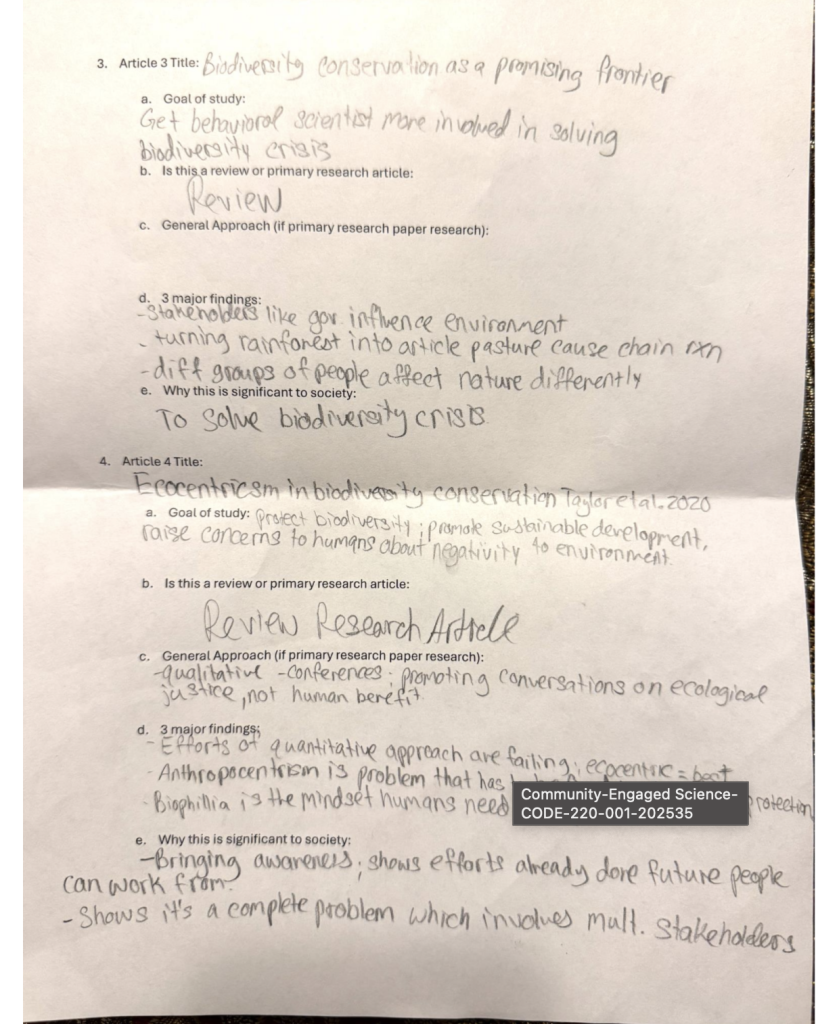 3. Article 3 Title: Biodiversity conservation as a promising frontier
a. Goal of study:
Get behavioral scientist more involved in solving
biodiversity crisis
b. Is this a review or primary research article:
Review
c. General Approach (if primary research paper research):
d. 3 major findings:
-Stakeholders like gov. influence environment
- turning rainforest into article pasture cause chain rxn
-diff groups of people affect nature differently
e. Why this is significant to society:
To solve biodiversity crisis
4. Article 4 Title:
Ecocentricsm in biodiversity conservation Taylor et al. 2020
a. Goal of study: protect biodiversity; promote sustainable development,
raise concerns to humans about negativity to environment
b. Is this a review or primary research article:
Review Research Article
c. General Approach (if primary research paper research):
-qualitative -conferences; promoting conversations on ecological
justice, not human benefit
d. 3 major findings:
- Efforts of quantitative approach are failing; ecocentric = best
- Anthropocentrism is problem that has
- Biophillia is the mindset humans need
Community-Engaged Science-
CODE-220-001-202535
protection
e. Why this is significant to society:
-Bringing awareness; shows efforts already done future people
can work from.
- Shows it's a complete problem which involves mult. stakeholders